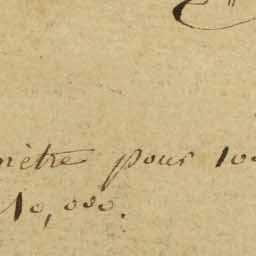 mètre pour 100
10,000.